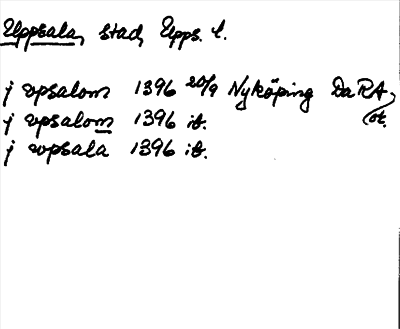 Uppsala, stad, Upps. l.
j vpsalom 1396 20/9 Nyköping DaRA,
j vpsalom 1396 ib. ot.
j wpsala 1396 ib.